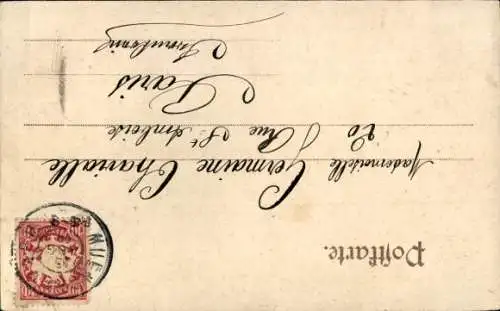 Postkarte.
Mademoiselle Germaine Chavialle
20 Rue St Ambroise
Paris